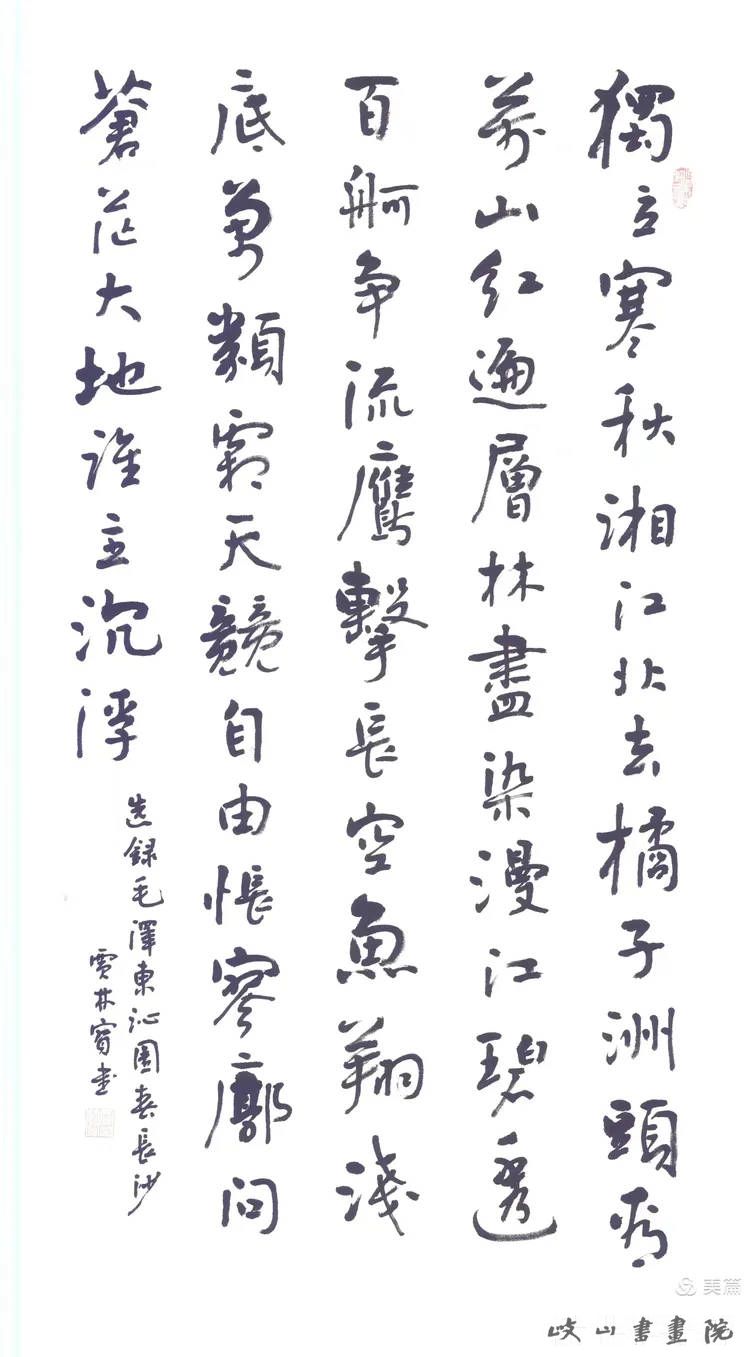 獨立寒秋湘江北去橘子洲頭看
萬山紅遍層林盡染漫江碧透
百舸争流鷹擊長空魚翔淺
底萬類霜天競自由悵寥廓问
蒼茫大地誰主沉浮
选録毛澤東沁園春長沙
賈林寶書
美篇
岐山書畫院